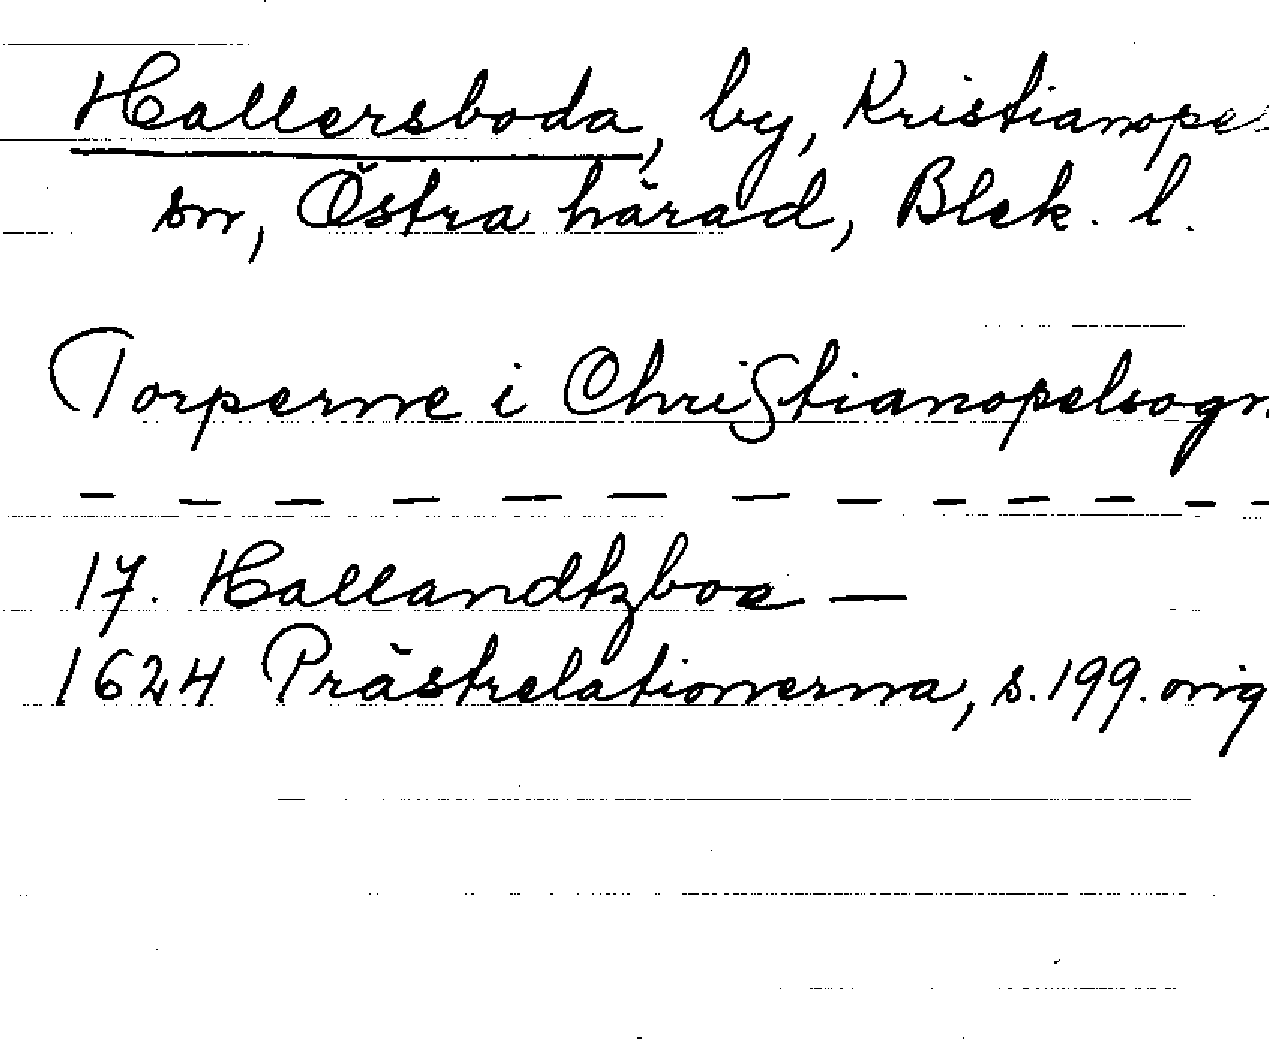 Hallersboda, by, Kristianope
sn, Östra härad, Blek. l.
Torperne i Christianopelsogn
— — — — — — — — — — — — —
17. Hallandtzboe —
1624 Prästrelationerna, s. 199. orig